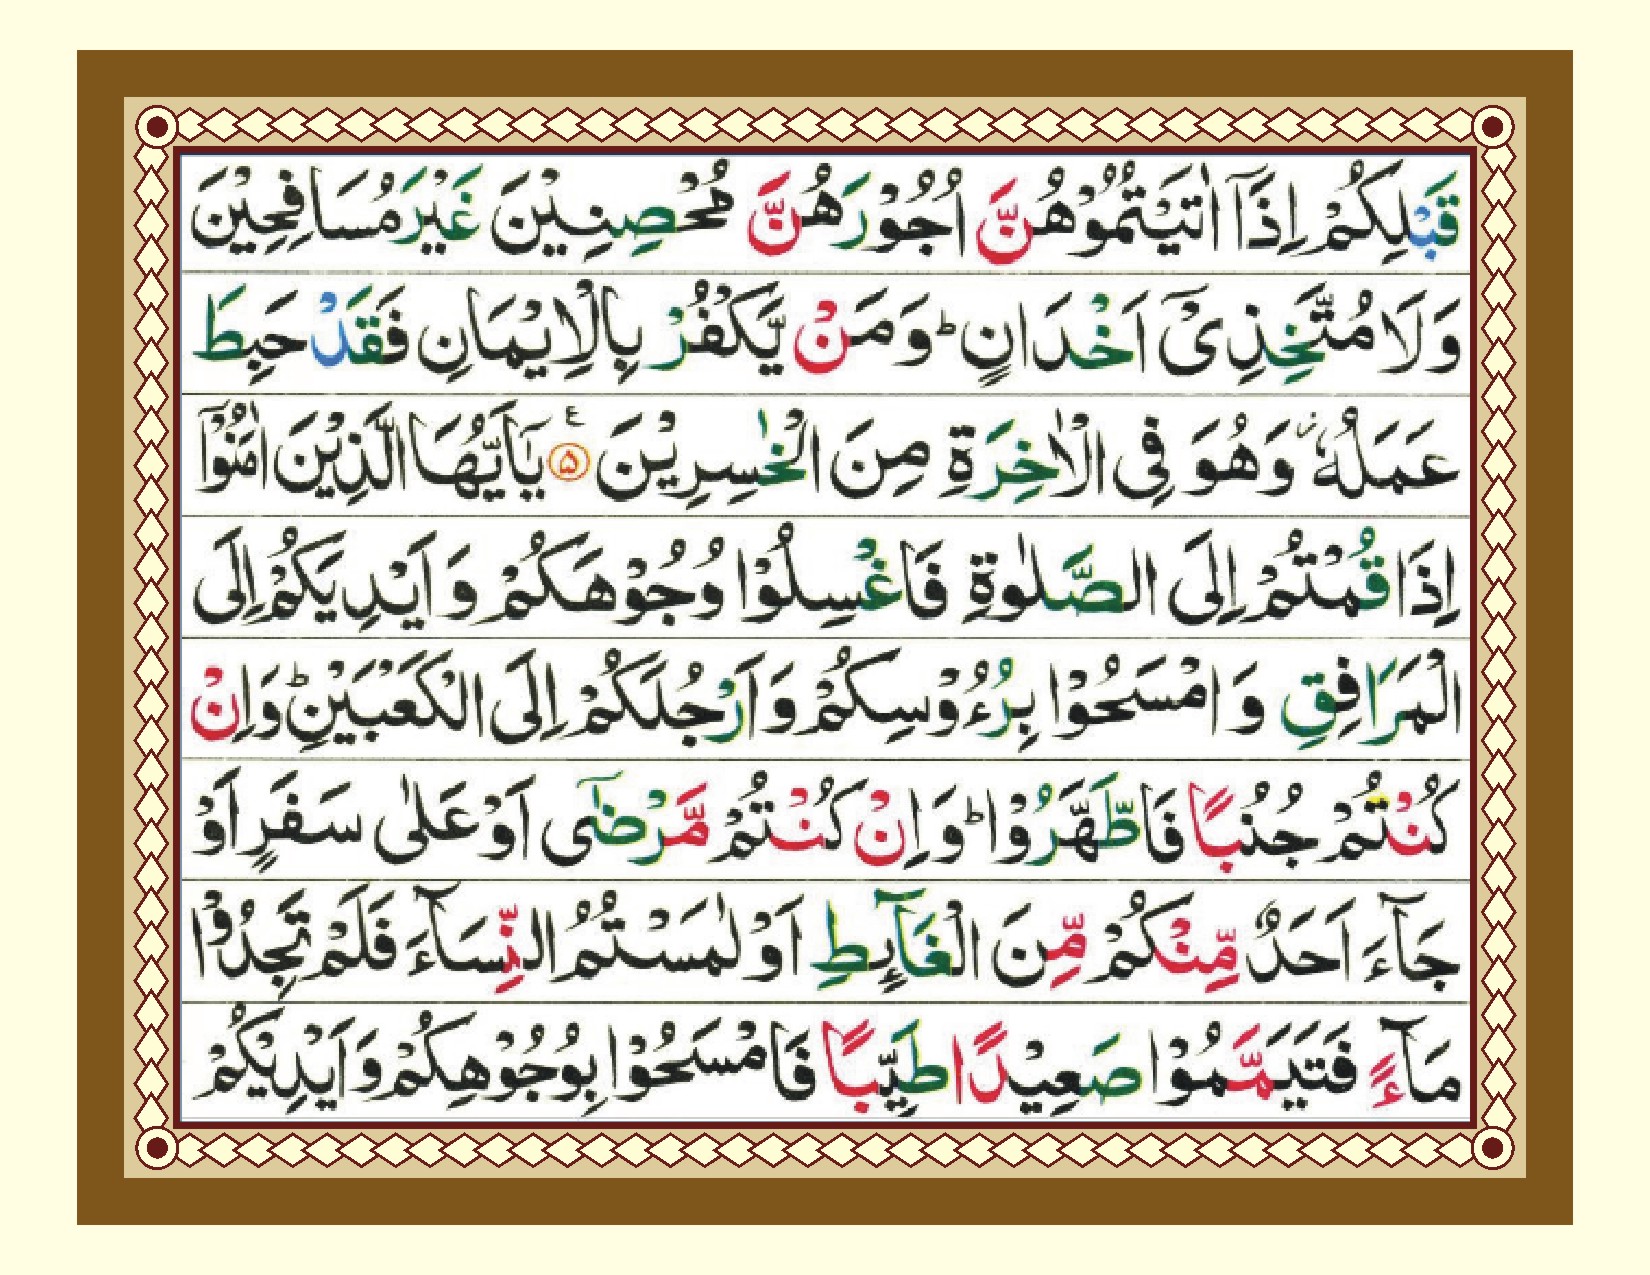 قَبْلِكُمْ اِذَاۤ اٰتَيْتُمُوْهُنَّ اُجُوْرَهُنَّ مُحْصِنِيْنَ غَيْرَ مُسَافِحِيْنَ
وَلَا مُتَّخِذِىْۤ اَخْدَانٍ ؕ وَمَنْ يَّكْفُرْ بِالْاِيْمَانِ فَقَدْ حَبِطَ
عَمَلُهٗ ز وَهُوَ فِى الْاٰخِرَةِ مِنَ الْخٰسِرِيْنَ ع ۵ يٰۤاَيُّهَا الَّذِيْنَ اٰمَنُوْۤا
اِذَا قُمْتُمْ اِلَى الصَّلٰوةِ فَاغْسِلُوْا وُجُوْهَكُمْ وَاَيْدِيَكُمْ اِلَى
الْمَرَافِقِ وَامْسَحُوْا بِرُءُوْسِكُمْ وَاَرْجُلَكُمْ اِلَى الْكَعْبَيْنِ ؕ وَاِنْ
كُنْتُمْ جُنُبًا فَاطَّهَّرُوْا ؕ وَاِنْ كُنْتُمْ مَّرْضٰۤى اَوْ عَلٰى سَفَرٍ اَوْ
جَآءَ اَحَدٌ مِّنْكُمْ مِّنَ الْغَآٮِٕطِ اَوْ لٰمَسْتُمُ النِّسَآءَ فَلَمْ تَجِدُوْا
مَآءً فَتَيَمَّمُوْا صَعِيْدًا طَيِّبًا فَامْسَحُوْا بِوُجُوْهِكُمْ وَاَيْدِيْكُمْ